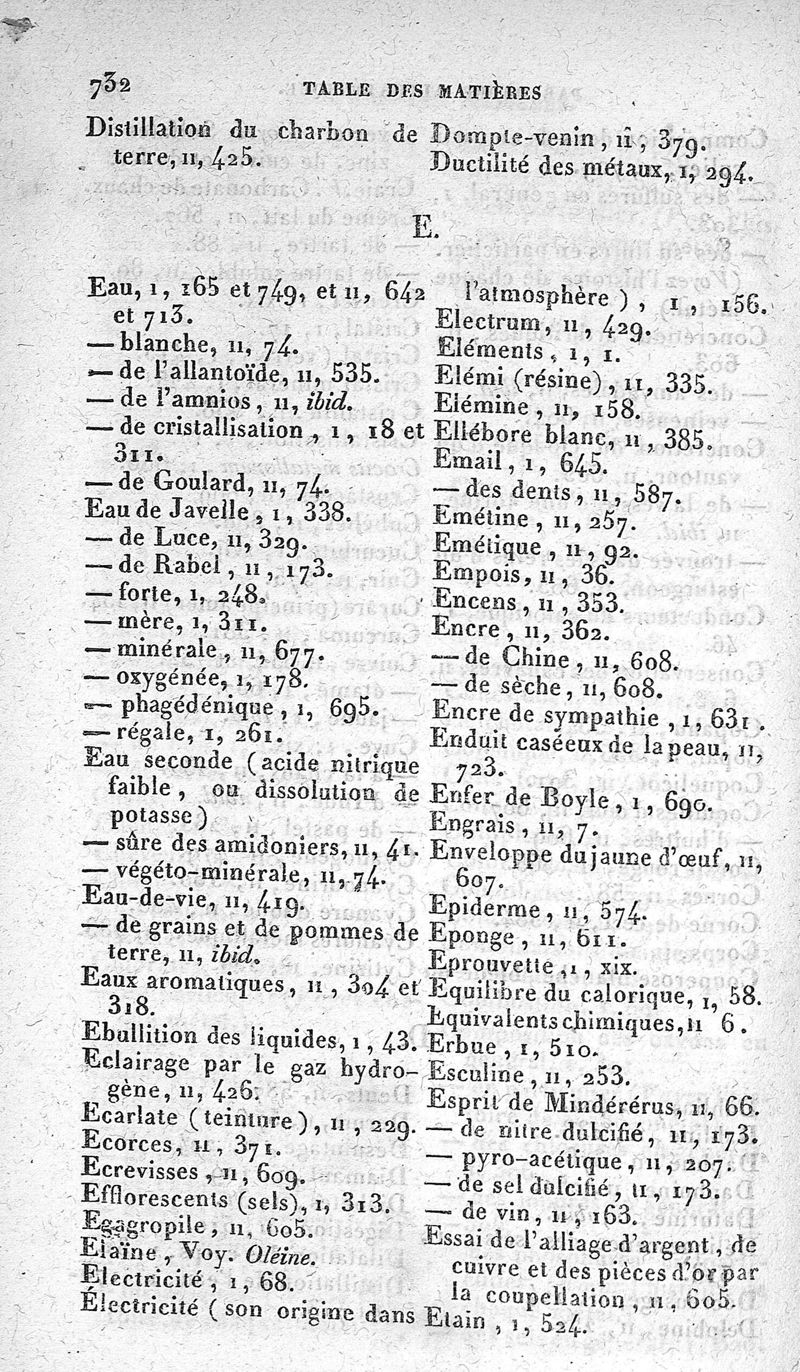 732
TABLE DES MATIÈRES
Distillation du charbon de
terre, II, 425.
Dompte-venin, II, 379.
Ductilité des métaux, I, 294.
E.
Eau, I, 165 et 749, et II, 642
et 713.
— blanche, II, 74.
— de l'allantoïde, II, 535.
— de l'amnios, II, ibid.
— de cristallisation, I, 18 et
311.
— de Goulard, II, 74.
Eau de Javelle, I, 338.
— de Luce, II, 329.
— de Rabel, II, 173.
— forte, I, 248.
— mère, I, 311.
— minérale, II, 677.
— oxygénée, I, 178.
— phagédénique, I, 695.
— régale, I, 261.
Eau seconde (acide nitrique
faible, ou dissolution de
potasse)
— sûre des amidoniers, II, 41.
— végéto-minérale, II, 74.
Eau-de-vie, II, 419.
— de grains et de pommes de
terre, II, ibid.
Eaux aromatiques, II, 304 et
318.
Ebullition des liquides, I, 43.
Eclairage par le gaz hydro-
gène, II, 426.
Ecarlate (teinture), II, 229.
Ecorces, II, 371.
Ecrevisses, II, 609.
Efflorescents (sels), I, 313.
Egagropile, II, 605.
Elaïne, Voy. Oléine.
Électricité, I, 68.
Électricité (son origine dans
l'atmosphère), I, 156.
Electrum, II, 429.
Eléments, I, 1.
Elémi (résine), II, 335.
Elémine, II, 158.
Ellébore blanc, II, 385.
Email, I, 645.
— des dents, II, 587.
Emétine, II, 257.
Emétique, II, 92.
Empois, II, 36.
Encens, II, 353.
Encre, II, 362.
— de Chine, II, 608.
— de sèche, II, 608.
Encre de sympathie, I, 631.
Enduit caséeux de la peau, II,
723.
Enfer de Boyle, I, 690.
Engrais, II, 7.
Enveloppe du jaune d'œuf, II,
607.
Epiderme, II, 574.
Eponge, II, 611.
Eprouvette, I, xix.
Equilibre du calorique, I, 58.
Equivalents chimiques, II 6.
Erbue, I, 510.
Esculine, II, 253.
Esprit de Mindérérus, II, 66.
— de nitre dulcifié, II, 173.
— pyro-acétique, II, 207.
— de sel dulcifié, II, 173.
— de vin, II, 163.
Essai de l'alliage d'argent, de
cuivre et des pièces d'or par
la coupellation, II, 605.
Etain, I, 524.